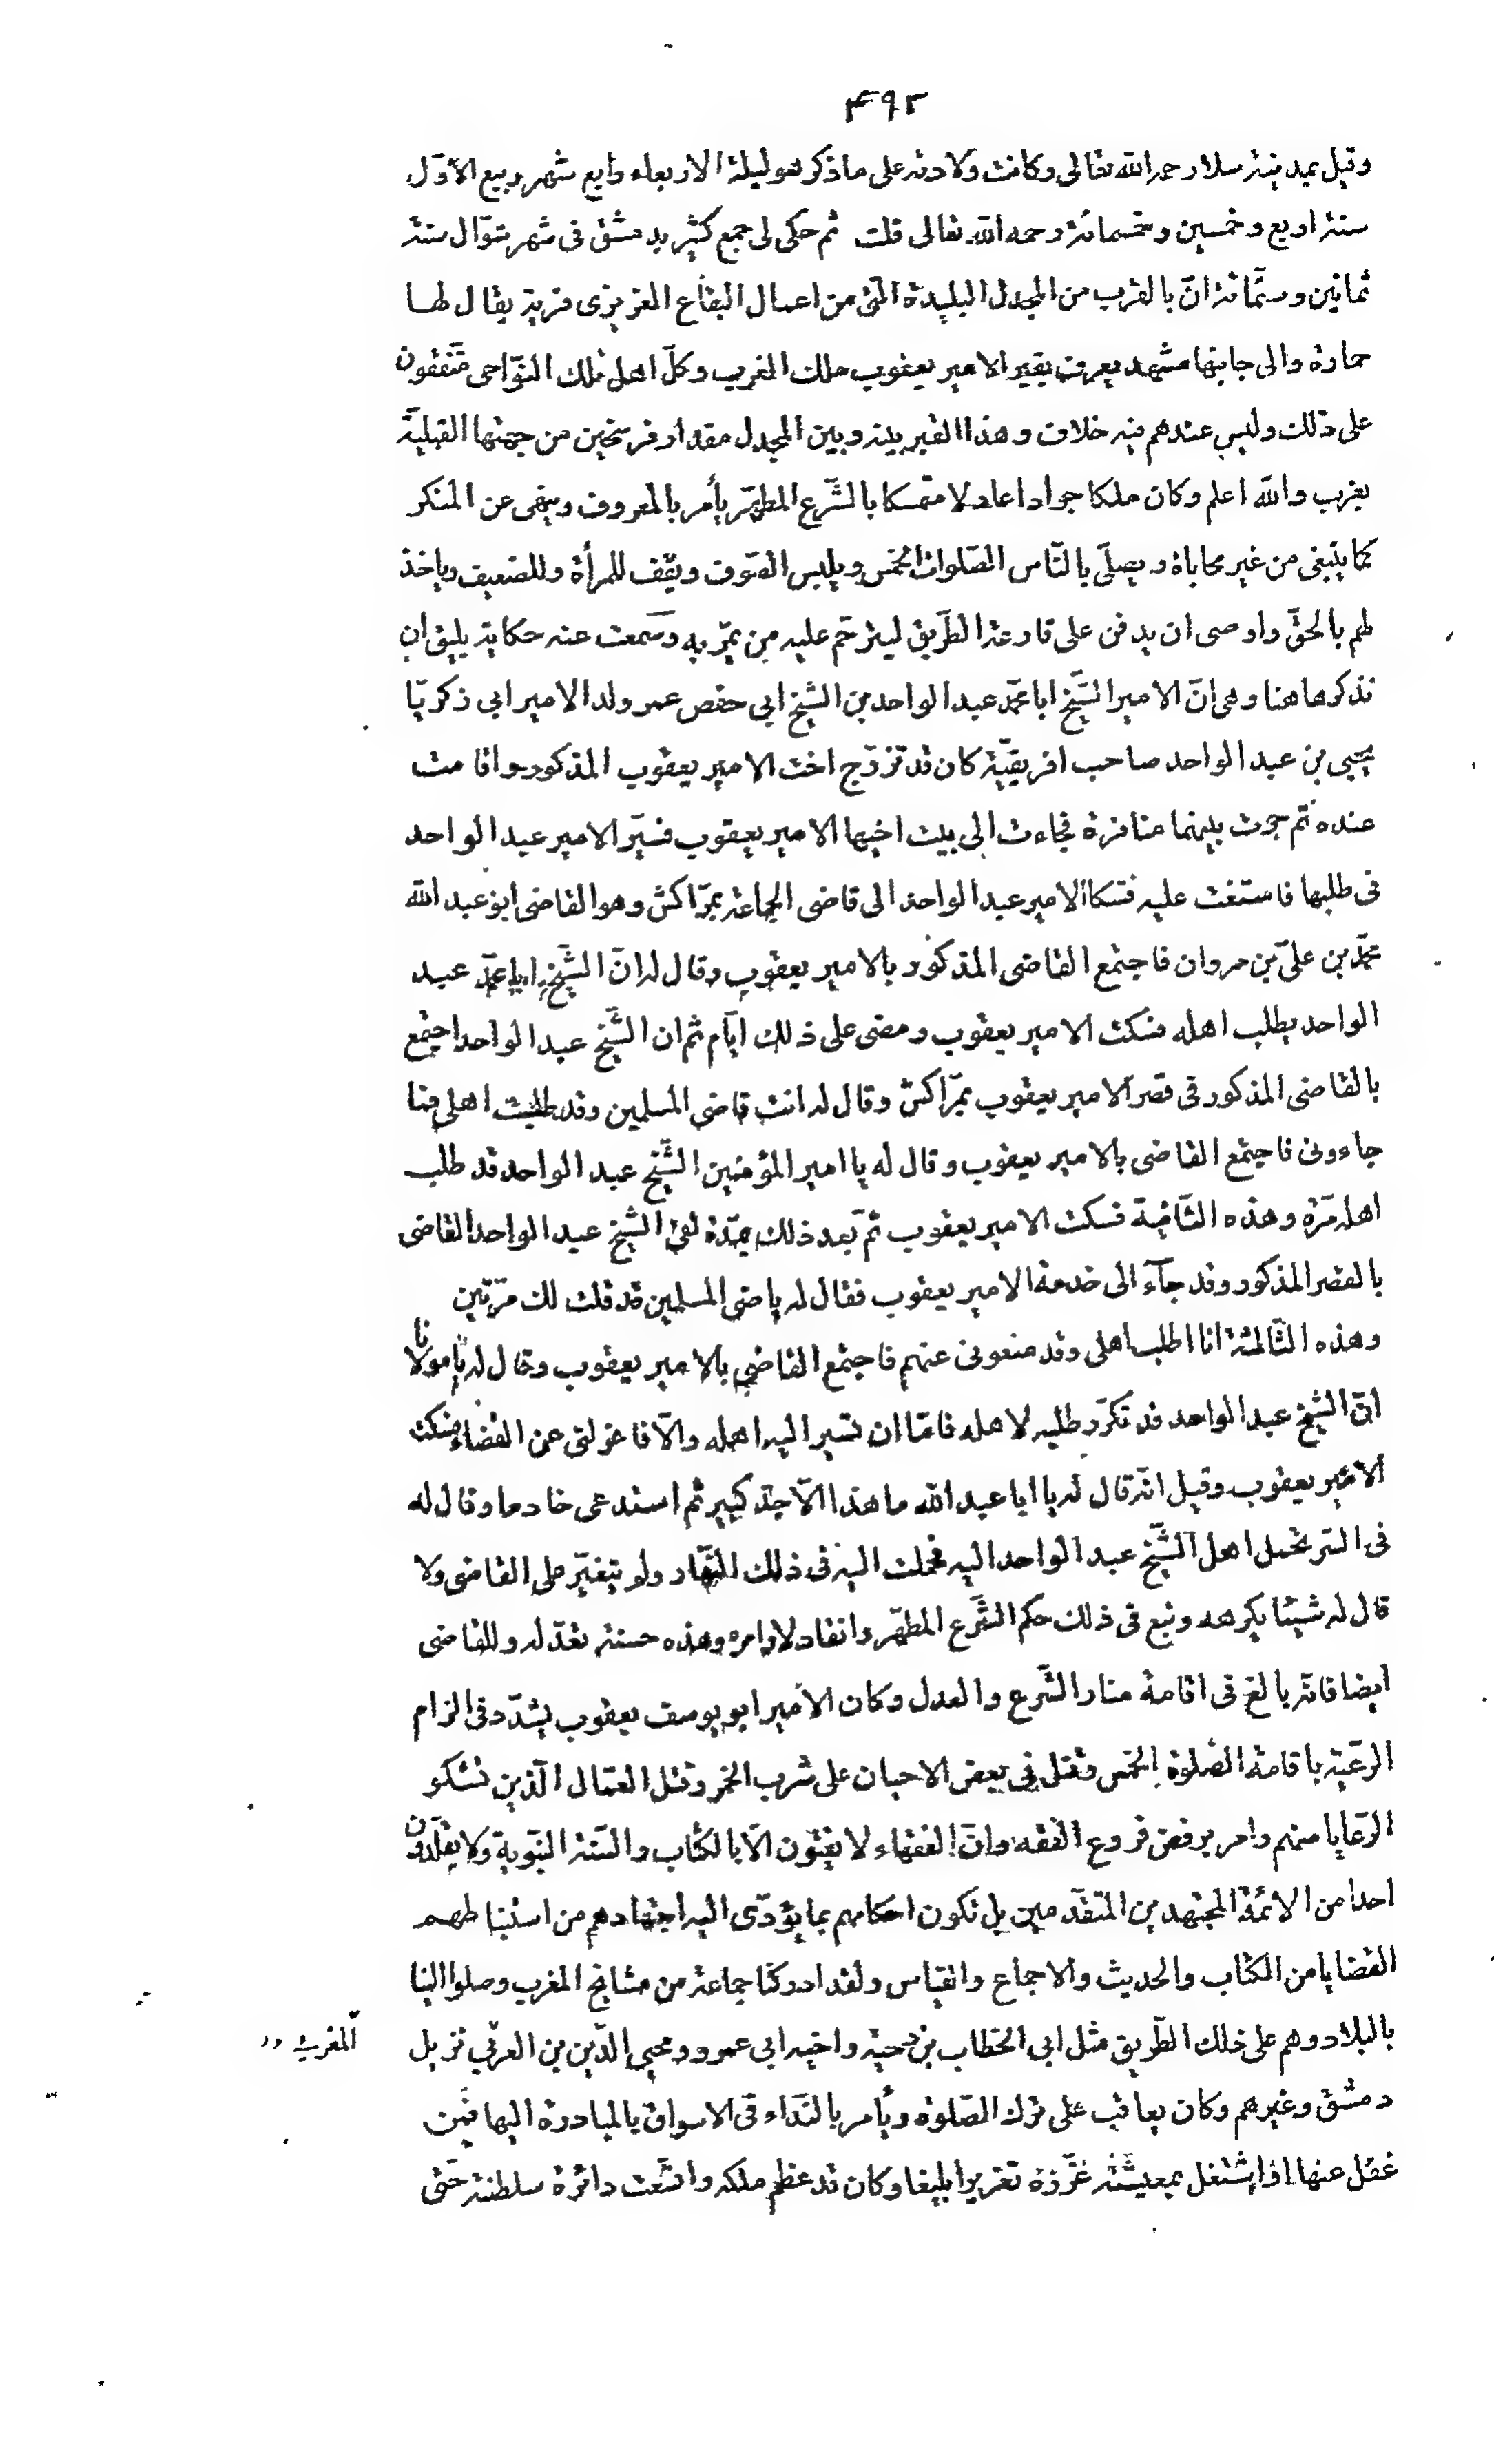 ۴۹۲
وقيل بمدينة سلا رحمه الله تعالى وكانت ولادته على ما ذكر هو ليلة الاربعاء رابع شهر ربيع الاوّل
سنة اربع وخمسين وخمسمائة رحمه الله تعالى قلت ثم حكى لى جمع كثير بدمشق فى شهر شوّال سنة
ثمانين وستّمائة انّ بالقرب من المجدل البليدة الّتى من اعمال البقاع العزيزى قرية يقال لها
حمارة والى جانبها مشهد يعرف بقبر الامير يعقوب ملك المغرب وكلّ اهل تلك النّواحى متّفقون
على ذلك وليس عندهم فيه خلاف وهذا القبر بينه وبين المجدل مقدار فرسخين من جهتها القبليّة
بغرب والله اعلم وكان ملكا جوادا عادلا متمسكا بالشّرع المطهّر يأمر بالمعروف وينهى عن المنكر
كما ينبغى من غير محاباة ويصلّى بالنّاس الصّلوات الخمس ويلبس الصّوف ويقف للمرأة وللضعيف وياخذ
لهم بالحقّ واوصى ان يدفن على قارعة الطّريق ليترحّم عليه من يمرّ به وسمعت عنه حكاية يليق ان
نذكرها هنا وهى انّ الامير الشّيخ ابا محمّد عبد الواحد بن الشّيخ ابى حفص عمر ولد الامير ابى زكريّا
يحيى بن عبد الواحد صاحب افريقيّة كان قد تزوّج اخت الامير يعقوب المذكور واقامت
عنده ثم جرت بينهما منافرة فجاءت الى بيت اخيها الامير يعقوب فسيّر الامير عبد الواحد
فى طلبها فامتنعت عليه فشكا الامير عبد الواحد الى قاضى الجماعة بمرّاكش وهو القاضى ابو عبد الله
محمّد بن علىّ بن مروان فاجتمع القاضى المذكور بالامير يعقوب وقال له انّ الشّيخ ابا محمّد عبد
الواحد يطلب اهله فسكت الامير يعقوب ومضى على ذلك ايّام ثم ان الشّيخ عبد الواحد اجتمع
بالقاضى المذكور فى قصر الامير يعقوب بمرّاكش وقال له انت قاضى المسلمين وقد طلبت اهلى فما
جاءونى فاجتمع القاضى بالامير يعقوب وقال له يا امير المؤمنين الشّيخ عبد الواحد قد طلب
اهله مرّة وهذه الثّانية فسكت الامير يعقوب ثمّ بعد ذلك بمدّة لقى الشّيخ عبد الواحد القاضى
بالقصر المذكور وقد جآء الى خدمة الامير يعقوب فقال له يا ضى المسلمين قد قلت لك مرّتين
وهذه الثّالثة انا اطلب اهلى وقد منعونى عنهم فاجتمع القاضى بالامير يعقوب وقال له يا مولانا
انّ الشيخ عبد الواحد قد تكرّر طلبه لاهله فامّا ان تسير اليه اهله والّا فاعزلنى عن القضاء فسكت
الامير يعقوب وقيل انّه قال له يا ابا عبد الله ما هذا الّا جدّ كبير ثم استدعى خادما وقال له
فى السّر تحمل اهل الشّيخ عبد الواحد اليه فحملت اليه فى ذلك النّهار ولم يتغيّر على القاضى ولا
قال له شيئا يكرهه وتبع فى ذلك حكم الشّرع المطهّر وانقاد لاوامره وهذه حسنة تعدّ له وللقاضى
ايضا فانّه بالغ فى اقامة منار الشّرع والعدل وكان الامير ابو يوسف يعقوب يشدّد فى الزام
الرعيّة باقامة الصّلوة الخمس وقتل فى بعض الاحيان على شرب الخمر وقتل العمّال الّذين تشكو
الرّعايا منهم وامر برفض فروع الفقه وانّ الفقهاء لا يفتون الّا بالكتاب والسّنة النّبوية ولا يقلّدون
احدا من الائمّة المجتهدين المتقدّمين بل تكون احكامهم بما يؤدّى اليه اجتهادهم من استنباطهم
القضايا من الكتاب والحديث والاجماع والقياس ولقد ادركنا جماعة من مشايخ المغرب وصلوا الينا
بالبلاد وهم على ذلك الطّريق مثل ابى الخطاب بن دحية واخيه ابى عمرو ومحيى الدّين بن العربى نزيل
المغرب
دمشق وغيرهم وكان يعاقب على ترك الصّلوة ويأمر بالنّداء فى الاسواق بالمبادرة اليها فمن
غفل عنها اذا اشتغل بمعيشته عزّره تعزيرا بليغا وكان قد عظم ملكه واتّسعت دائرة سلطنته حتّى